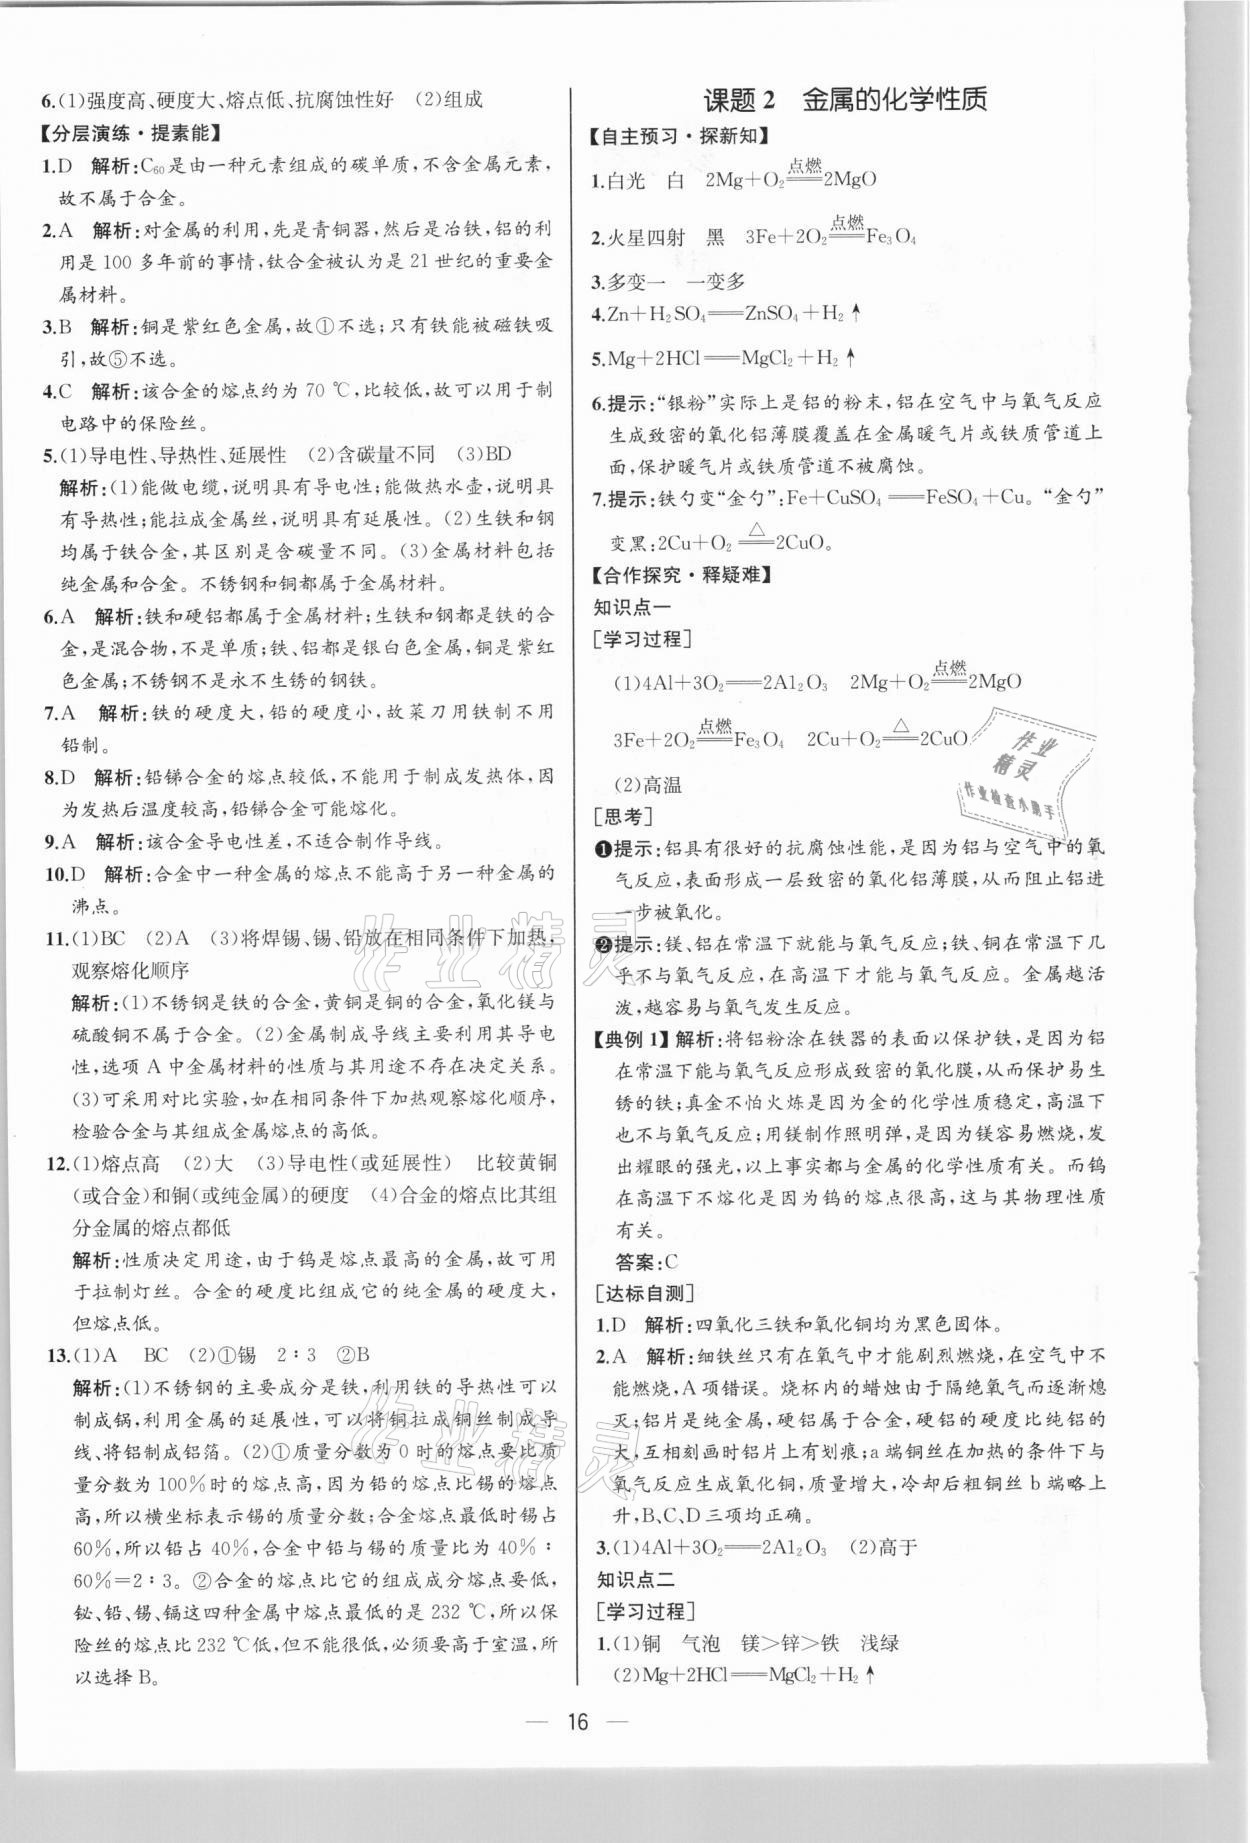 6.(1)强度高、硬度大、熔点低、抗腐蚀性好　(2)组成
【分层演练·提素能】
1.D　解析:C₆₀是由一种元素组成的碳单质,不含金属元素,
故不属于合金。
2.A　解析:对金属的利用,先是青铜器,然后是冶铁,铝的利
用是100多年前的事情,钛合金被认为是21世纪的重要金
属材料。
3.B　解析:铜是紫红色金属,故①不选;只有铁能被磁铁吸
引,故⑤不选。
4.C　解析:该合金的熔点约为70 ℃,比较低,故可以用于制
电路中的保险丝。
5.(1)导电性、导热性、延展性　(2)含碳量不同　(3)BD
解析:(1)能做电缆,说明具有导电性;能做热水壶,说明具
有导热性;能拉成金属丝,说明具有延展性。(2)生铁和钢
均属于铁合金,其区别是含碳量不同。(3)金属材料包括
纯金属和合金。不锈钢和铜都属于金属材料。
6.A　解析:铁和硬铝都属于金属材料;生铁和钢都是铁的合
金,是混合物,不是单质;铁、铝都是银白色金属,铜是紫红
色金属;不锈钢不是永不生锈的钢铁。
7.A　解析:铁的硬度大,铅的硬度小,故菜刀用铁制不用
铅制。
8.D　解析:铅锑合金的熔点较低,不能用于制成发热体,因
为发热后温度较高,铅锑合金可能熔化。
9.A　解析:该合金导电性差,不适合制作导线。
10.D　解析:合金中一种金属的熔点不能高于另一种金属的
沸点。
11.(1)BC　(2)A　(3)将焊锡、锡、铅放在相同条件下加热,
观察熔化顺序
解析:(1)不锈钢是铁的合金,黄铜是铜的合金,氧化镁与
硫酸铜不属于合金。(2)金属制成导线主要利用其导电
性,选项A中金属材料的性质与其用途不存在决定关系。
(3)可采用对比实验,如在相同条件下加热观察熔化顺序,
检验合金与其组成金属熔点的高低。
12.(1)熔点高　(2)大　(3)导电性(或延展性)　比较黄铜
(或合金)和铜(或纯金属)的硬度　(4)合金的熔点比其组
分金属的熔点都低
解析:性质决定用途,由于钨是熔点最高的金属,故可用
于拉制灯丝。合金的硬度比组成它的纯金属的硬度大,
但熔点低。
13.(1)A　BC　(2)①锡　2∶3　②B
解析:(1)不锈钢的主要成分是铁,利用铁的导热性可以
制成锅,利用金属的延展性,可以将铜拉成铜丝制成导
线、将铝制成铝箔。(2)①质量分数为0时的熔点要比质
量分数为100%时的熔点高,因为铅的熔点比锡的熔点
高,所以横坐标表示锡的质量分数;合金熔点最低时锡占
60%,所以铅占40%,合金中铅与锡的质量比为40%∶
60%=2∶3。②合金的熔点比它的组成成分熔点要低,
铋、铅、锡、镉这四种金属中熔点最低的是232 ℃,所以保
险丝的熔点比232 ℃低,但不能很低,必须要高于室温,所
以选择B。
课题2　金属的化学性质
【自主预习·探新知】
1.白光　白　2Mg+O₂ 点燃══ 2MgO
2.火星四射　黑　3Fe+2O₂ 点燃══ Fe₃O₄
3.多变一　一变多
4.Zn+H₂SO₄══ZnSO₄+H₂↑
5.Mg+2HCl══MgCl₂+H₂↑
6.提示:“银粉”实际上是铝的粉末,铝在空气中与氧气反应
生成致密的氧化铝薄膜覆盖在金属暖气片或铁质管道上
面,保护暖气片或铁质管道不被腐蚀。
7.提示:铁勺变“金勺”:Fe+CuSO₄══FeSO₄+Cu。“金勺”
变黑:2Cu+O₂ △══ 2CuO。
【合作探究·释疑难】
知识点一
[学习过程]
(1)4Al+3O₂══2Al₂O₃　2Mg+O₂ 点燃══ 2MgO
3Fe+2O₂ 点燃══ Fe₃O₄　2Cu+O₂ △══ 2CuO
(2)高温
[思考]
❶提示:铝具有很好的抗腐蚀性能,是因为铝与空气中的氧
气反应,表面形成一层致密的氧化铝薄膜,从而阻止铝进
一步被氧化。
❷提示:镁、铝在常温下就能与氧气反应;铁、铜在常温下几
乎不与氧气反应,在高温下才能与氧气反应。金属越活
泼,越容易与氧气发生反应。
【典例1】解析:将铝粉涂在铁器的表面以保护铁,是因为铝
在常温下能与氧气反应形成致密的氧化膜,从而保护易生
锈的铁;真金不怕火炼是因为金的化学性质稳定,高温下
也不与氧气反应;用镁制作照明弹,是因为镁容易燃烧,发
出耀眼的强光,以上事实都与金属的化学性质有关。而钨
在高温下不熔化是因为钨的熔点很高,这与其物理性质
有关。
答案:C
[达标自测]
1.D　解析:四氧化三铁和氧化铜均为黑色固体。
2.A　解析:细铁丝只有在氧气中才能剧烈燃烧,在空气中不
能燃烧,A项错误。烧杯内的蜡烛由于隔绝氧气而逐渐熄
灭;铝片是纯金属,硬铝属于合金,硬铝的硬度比纯铝的
大,互相刻画时铝片上有划痕;a端铜丝在加热的条件下与
氧气反应生成氧化铜,质量增大,冷却后粗铜丝b端略上
升,B、C、D三项均正确。
3.(1)4Al+3O₂══2Al₂O₃　(2)高于
知识点二
[学习过程]
1.(1)铜　气泡　镁>锌>铁　浅绿
(2)Mg+2HCl══MgCl₂+H₂↑
— 16 —
作业
精灵
作业检查小助手
作业精灵
作业精灵